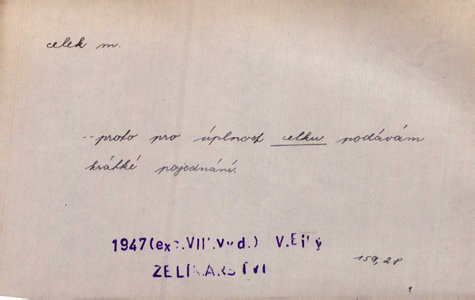 celek m.
--proto pro úplnost celku podávám
krátké pojednání.
1947(exc.VII.vyd.) V.Bílý
ZELINÁŘSTVÍ
159,28